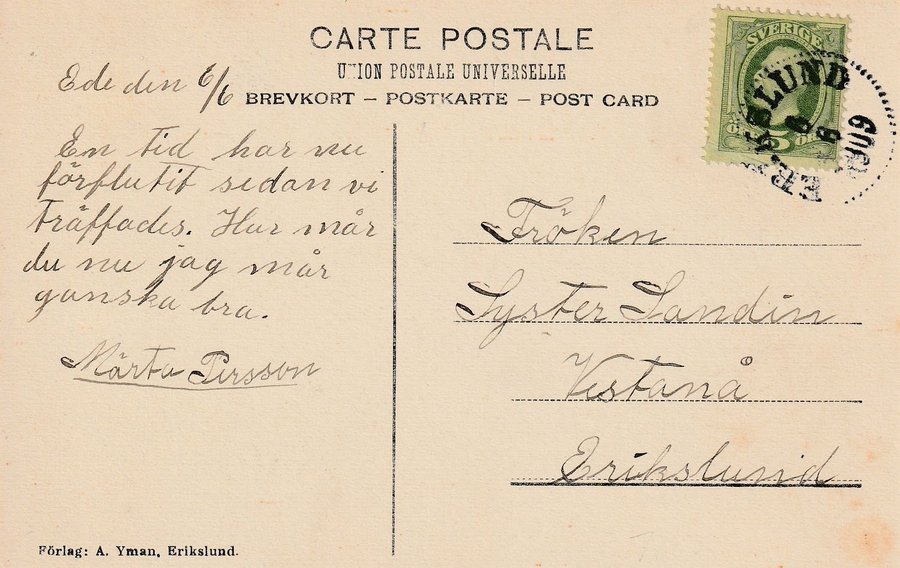 CARTE POSTALE
UNION POSTALE UNIVERSELLE
BREVKORT – POSTKARTE – POST CARD
Ede den 6/6
En tid har nu
förflutit sedan vi
träffades. Hur mår
du nu jag mår
ganska bra.
Märta Persson
SVERIGE
5
LUND
6
6
Fröken
Syster Sandin
Vestanå
Erikslund
Förlag: A. Yman, Erikslund.